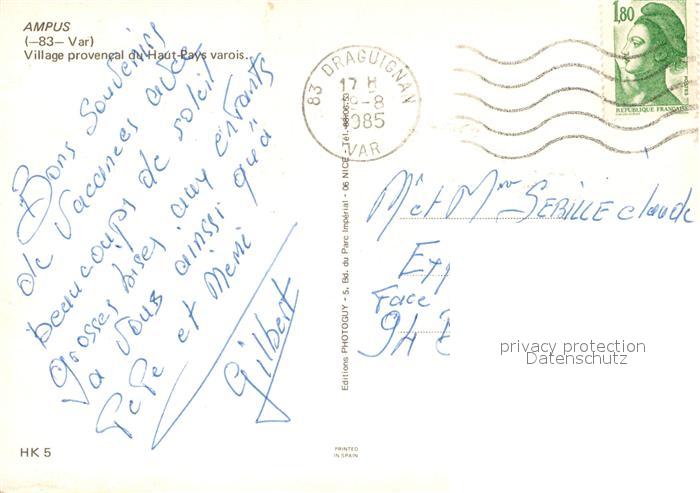 AMPUS
(—83— Var)
Village provençal du Haut-Pays varois..
Bons souvenirs
de vacances avec
beaucoups de soleil
grosses bises aux enfants
a vous ainssi qu'a
PePe et Mémé
Gilbert
HK 5
Editions PHOTOGUY - 5. Bd. du Parc Impérial - 06 NICE - Tél.
PRINTED
IN SPAIN
83 DRAGUIGNAN
17 H
-8
1985
VAR
1,80
REPUBLIQUE FRANÇAISE
Mr et Mme SEBILLE claude
Face
94
privacy protection
Datenschutz